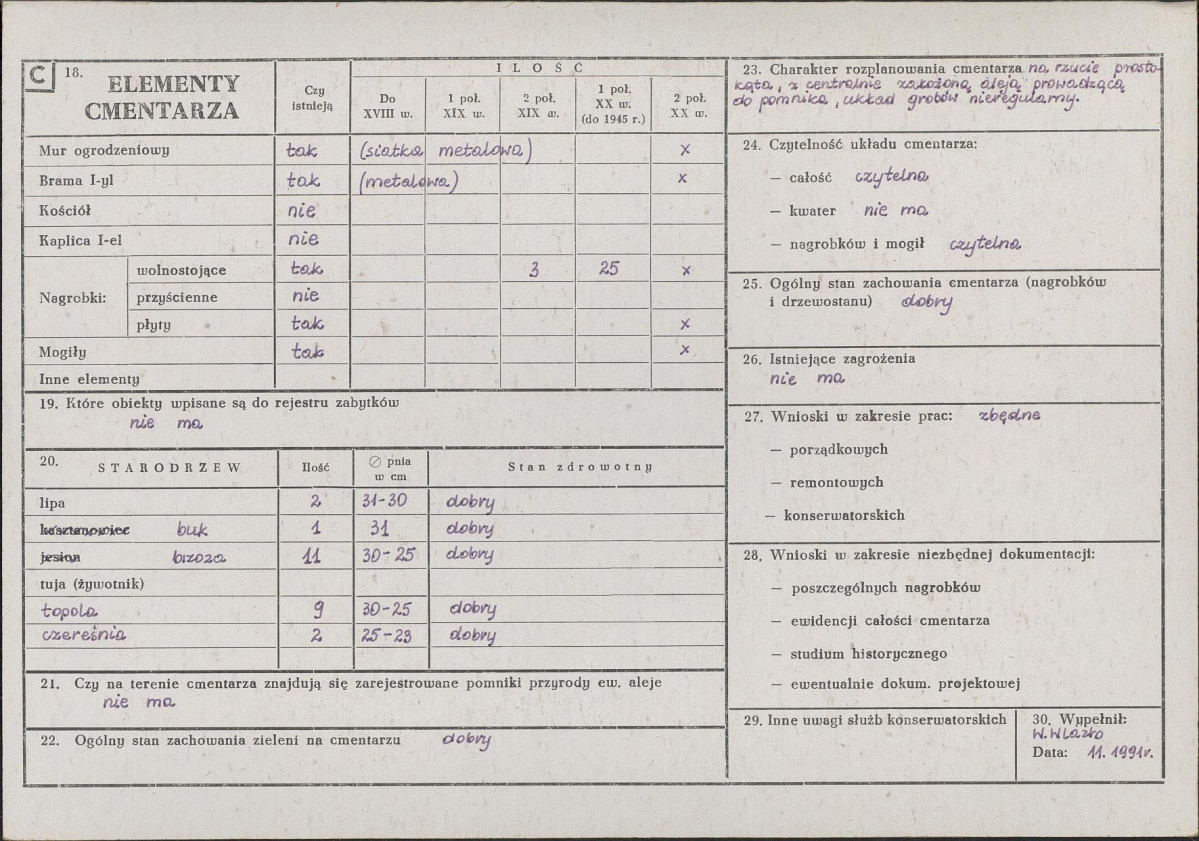 C 18. ELEMENTY CMENTARZA
Czy istnieją
ILOŚĆ
Do XVIII w.
1 poł. XIX w.
2 poł. XIX w.
1 poł. XX w. (do 1945 r.)
2 poł. XX w.
Mur ogrodzeniowy tak (siatka metalowa) x
Brama I-yl tak (metalowa) x
Kościół nie
Kaplica I-el nie
Nagrobki:
wolnostojące tak 3 25 x
przyścienne nie
płyty tak x
Mogiły tak x
Inne elementy
19. Które obiekty wpisane są do rejestru zabytków
nie ma
20. STARODRZEW Ilość ∅ pnia w cm Stan zdrowotny
lipa 2 31-30 dobry
kasztanowiec buk 1 31 dobry
jesion brzoza 11 30-25 dobry
tuja (żywotnik)
topola 9 30-25 dobry
czereśnia 2 25-23 dobry
21. Czy na terenie cmentarza znajdują się zarejestrowane pomniki przyrody ew. aleje
nie ma
22. Ogólny stan zachowania zieleni na cmentarzu dobry
23. Charakter rozplanowania cmentarza na rzucie prosto-
kąta, z centralnie założoną aleją prowadzącą
do pomnika, układ grobów nieregularny.
24. Czytelność układu cmentarza:
— całość czytelna
— kwater nie ma
— nagrobków i mogił czytelna
25. Ogólny stan zachowania cmentarza (nagrobków
i drzewostanu) dobry
26. Istniejące zagrożenia
nie ma
27. Wnioski w zakresie prac: zbędne
— porządkowych
— remontowych
— konserwatorskich
28. Wnioski w zakresie niezbędnej dokumentacji:
— poszczególnych nagrobków
— ewidencji całości cmentarza
— studium historycznego
— ewentualnie dokum. projektowej
29. Inne uwagi służb konserwatorskich
30. Wypełnił:
W. Wlazło
Data: 11. 1991r.